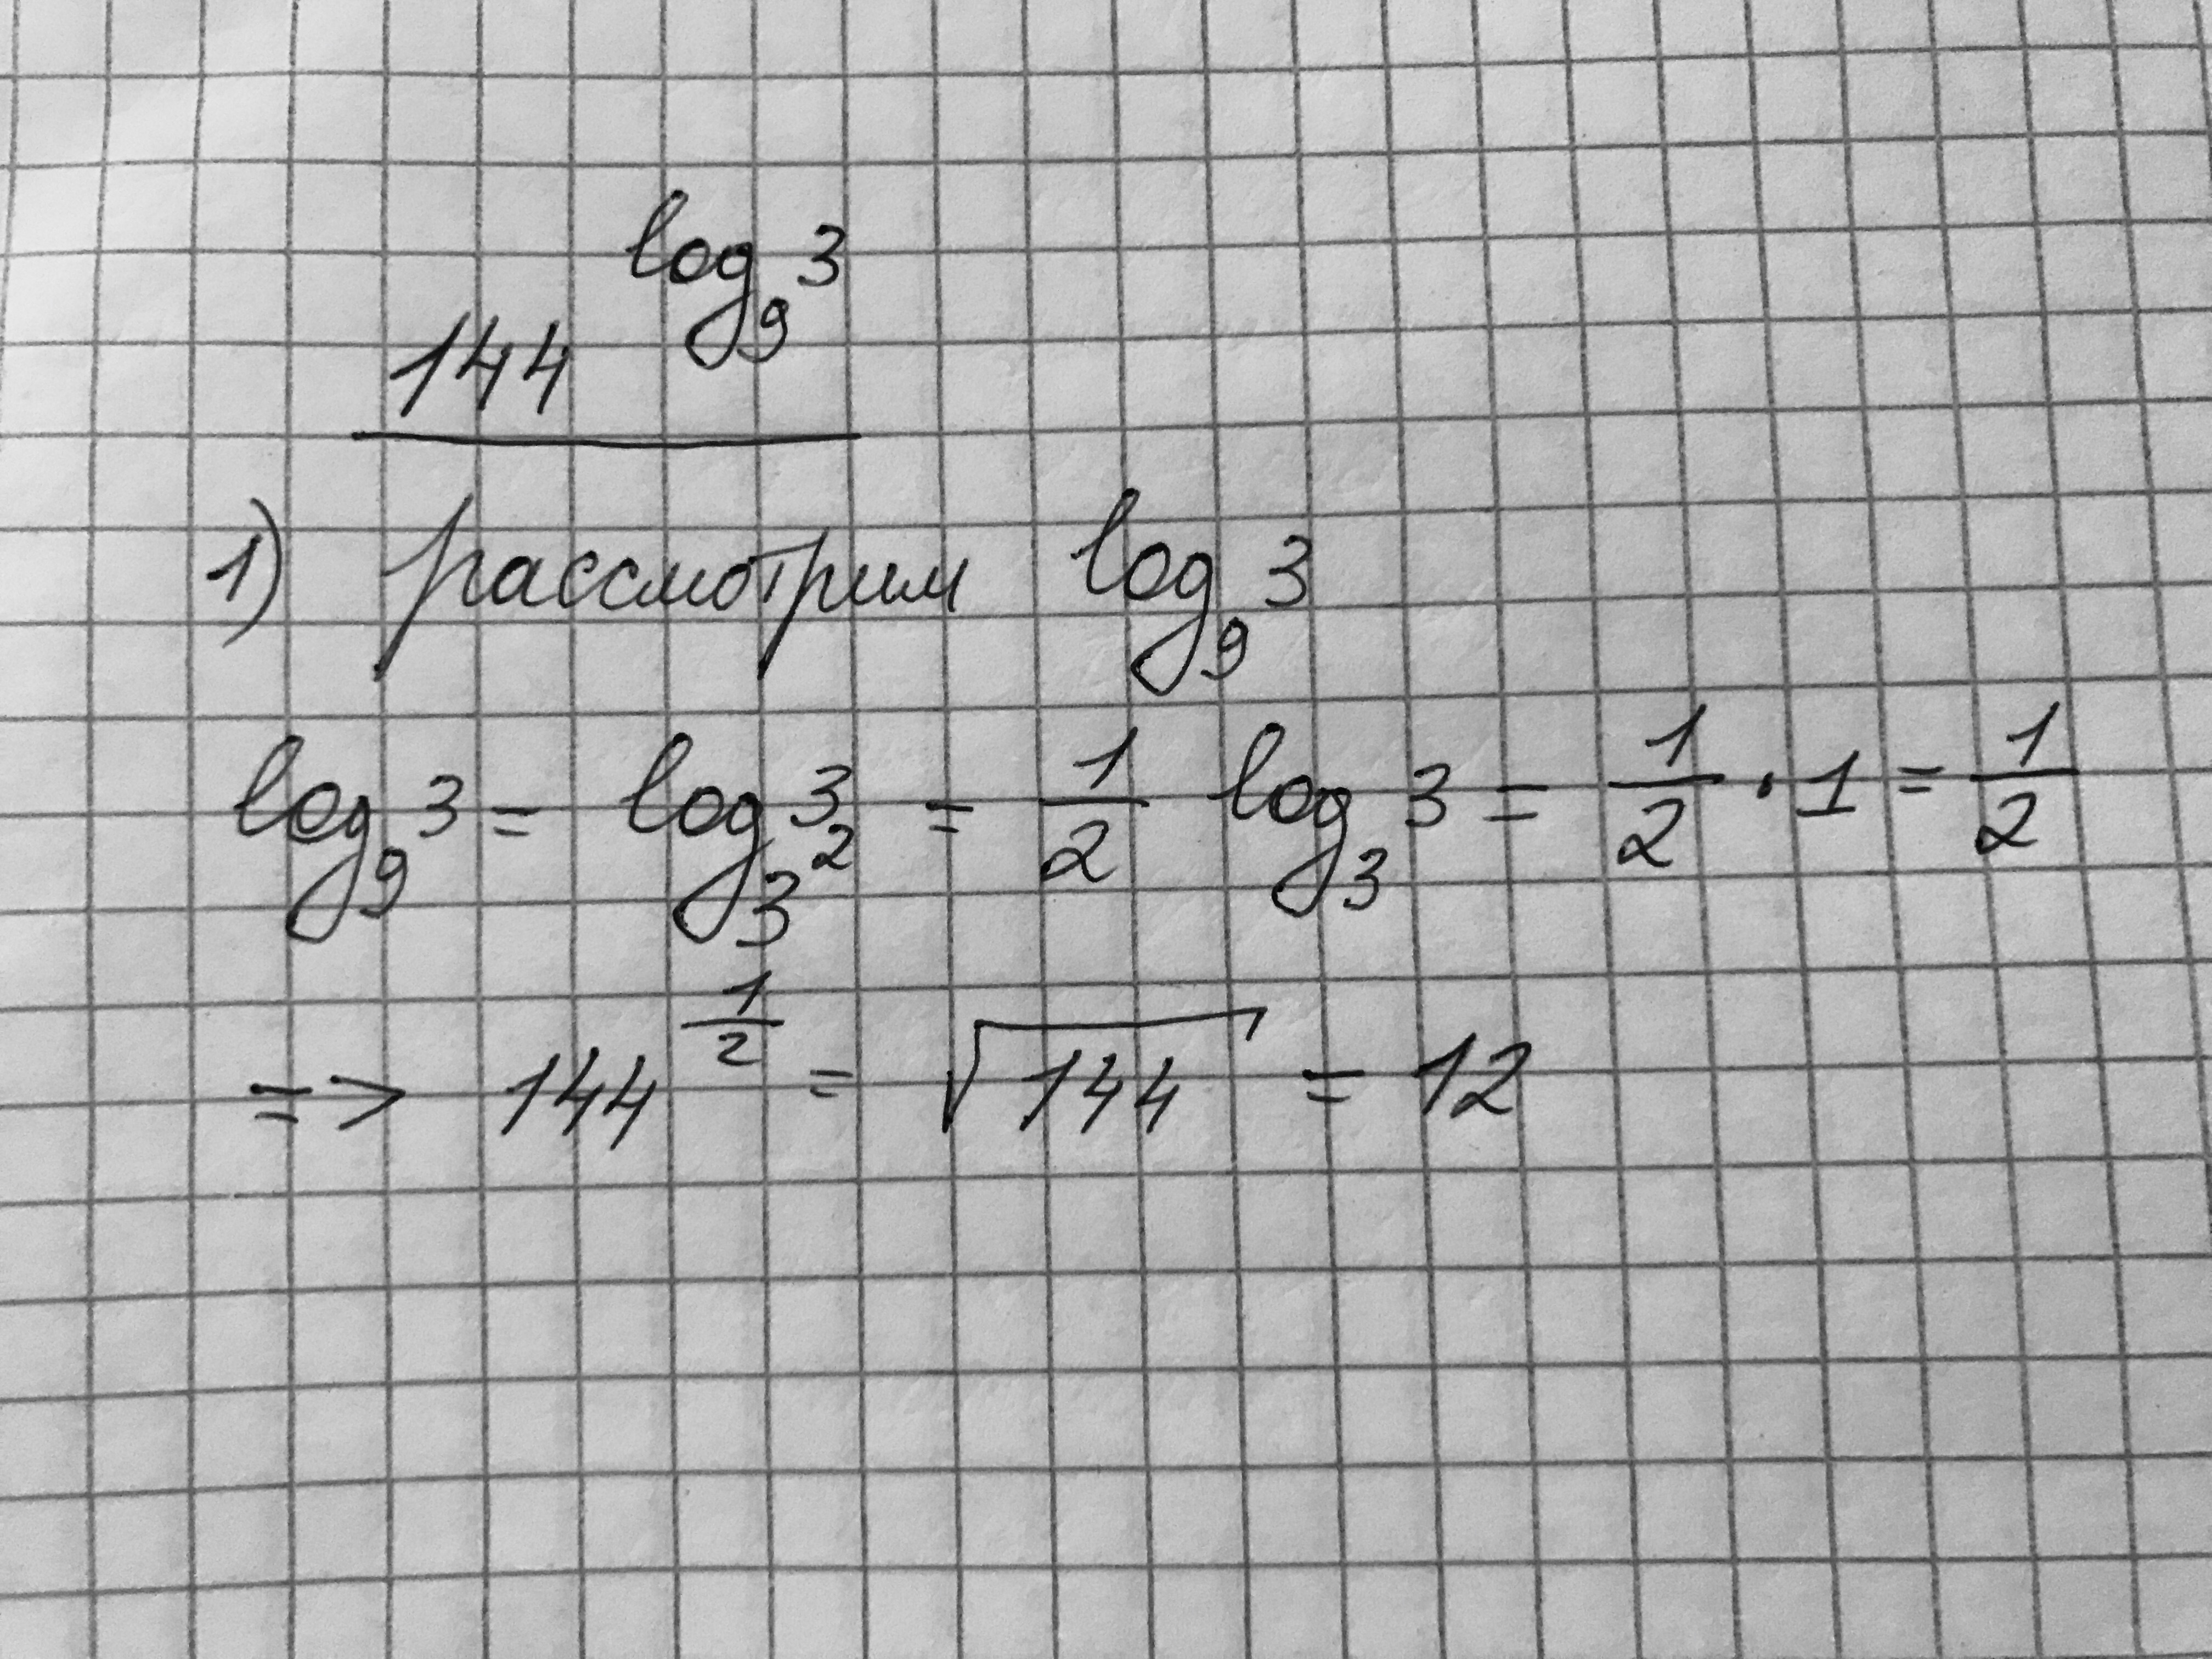 144^{log_9 3}
1) рассмотрим log_9 3
log_9 3 = log_{3^2} 3 = \frac{1}{2} log_3 3 = \frac{1}{2} · 1 = \frac{1}{2}
=> 144^{\frac{1}{2}} = \sqrt{144} = 12